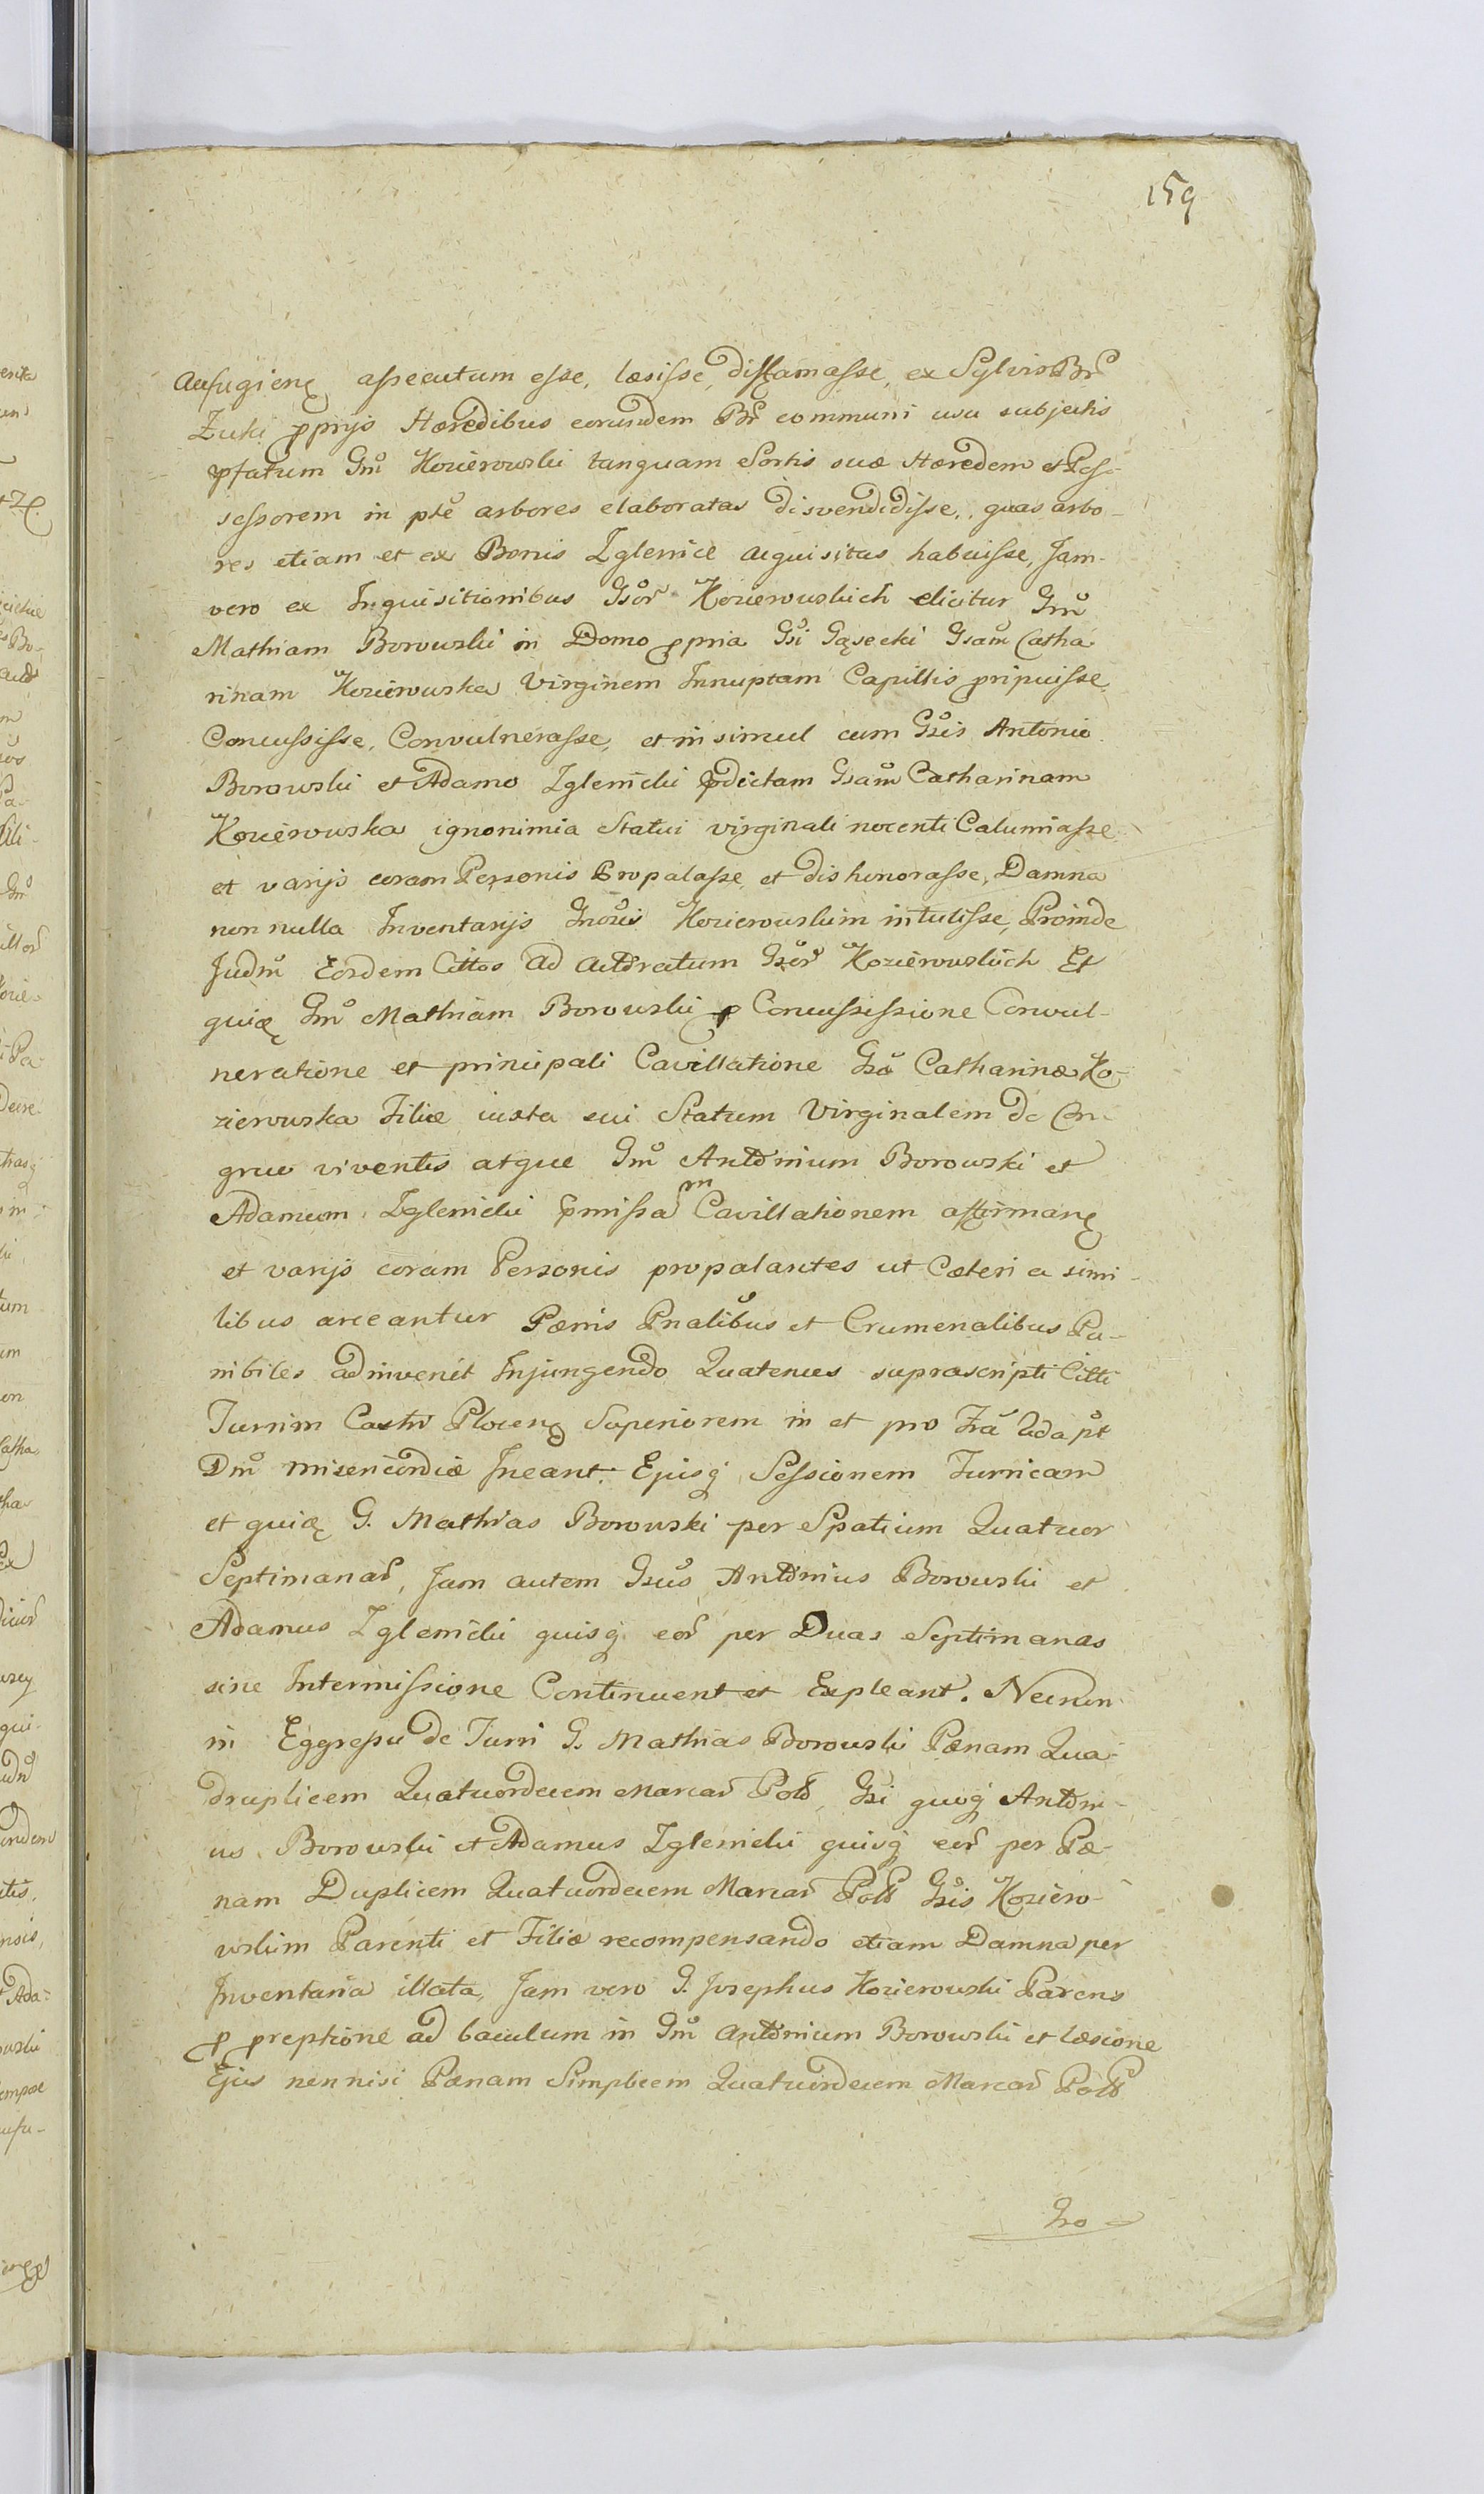 159
Aufugieng assecutum esse, læsisse, diffamasse, ex Sylvis Br
Żuki ppryjs Hæredibus eorundem Br communi usu subjectis
pfatum Gm Kozierowski tanquam Sortis suæ Hæredem et Pos-
sessorem in pte arbores elaboratas disvendidisse, quas arbo-
res etiam et ex Bonis Zglenice acquisitas habuisse, Jam-
vero ex Inquisitionibus Gsor Kozierowskich elicitur Gm
Mathiam Borowski in Domo ppria Gsi Gąsecki Gsam Catha
rinam Kozierowska Virginem Innuptam Capillis pripuisse,
Concussisse, Convulnerasse, et insimul cum Gsis Antonio
Borowski et Adamo Zglenicki pdictam Gsam Catharinam
Kozierowska ignonimia Statui virginali nocenti Calumiasse
et varijs coram Personis Propalasse et dishonorasse, Damna
non nulla Inventarijs Kozierowskim intulisse, Proinde
Judm Eosdem Cittos ad Gsor Kozierowskich Et
quiq Gm Mathiam Borowski p Concussissione Convul-
neratione et principali Cavillatione Gsæ Catharinæ Ko-
zierowska Filiæ iuxta sui Statum Virginalem de Con-
gruo viventis atque Gm Antonium Borowski et
Adamum Zglenicki pmissam Cavillationem affirmang
et varijs coram Personis propalantes ut Cæteri a simi-
libus arceantur Pœnis Pnalibus et Crumenalibus Pu-
nibiles adinvenit Injungendo Quatenus suprascripti Citti
Turrim Castri Plocens Superiorem in et pro
Dm misericordiæ Ineant. Ejusq Sessionem Turricam
et quiq G. Mathias Borowski per Spatium Quatuor
Septimanar, Jam autem Gsus Antonius Borowski et
Adamus Zglenicki quisq eor per Duas Septimanas
sine Intermissione Continuent et Expleant. Necnon
in Eggressu de Turri G. Mathias Borowski Pænam Qua-
druplicem Quatuordecem Marcar Pol, Gsi quoq Antoni-
us Borowski et Adamus Zglenicki quisq eor per Pæ-
nam Duplicem Quatuordecem Marcar Pol Gsis Koziero-
wskim Parenti et Filiæ recompensando etiam Damna per
Inventaria illata, Jam vero G. Josephus Kozierowski Parens
p preptione ad baculum in Gm Antonium Borowski et læsione
Ejus nonnisi Pænam Simplicem Quatuordecem Marcar Pol